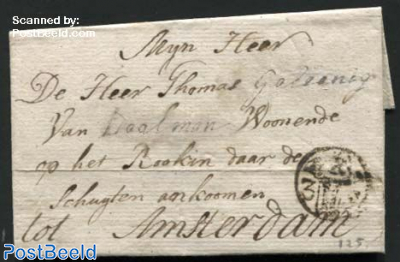 Scanned from
PostBeeld.com
Myn Heer
De Heer Thomas
Van Daalman Woonende
op het Rookin daar de
Schuyten aenkoomen
tot Amsterdam
125.
PostBeeld
PostBeeld